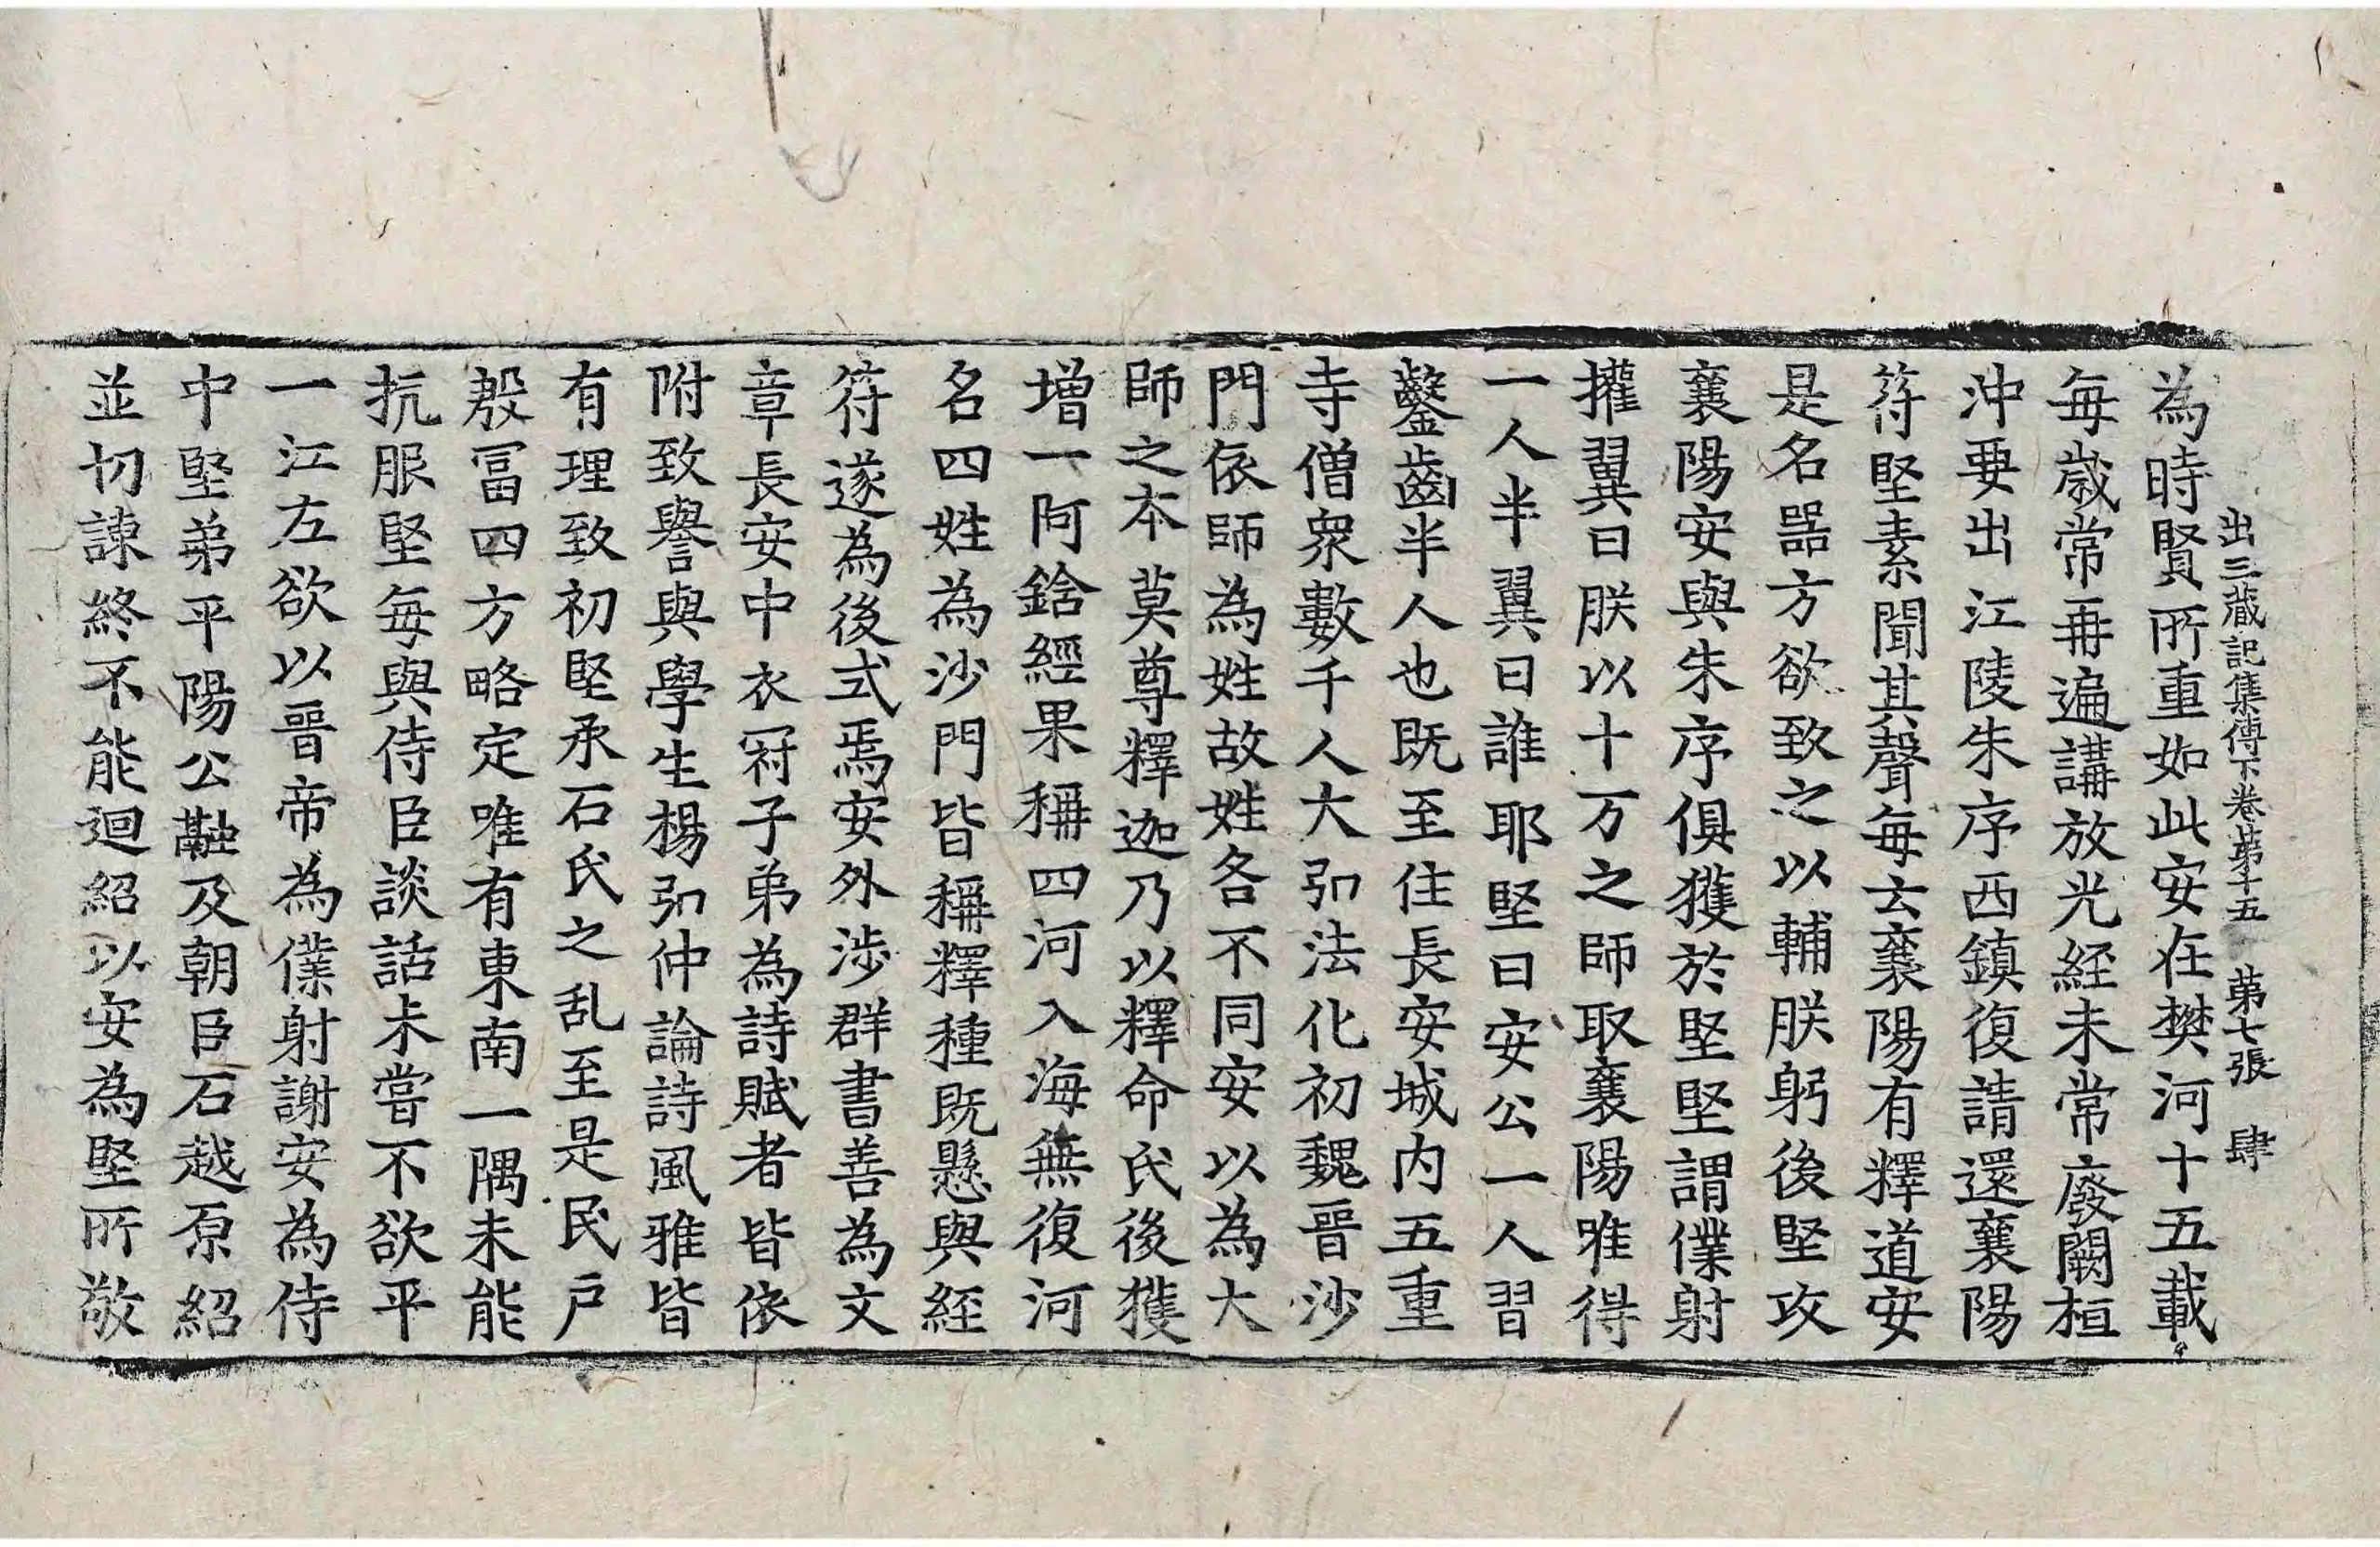 出三藏記集傳下卷第十五　第七張　肆
為時賢所重如此安在樊河十五載
每歲常再遍講放光經未常廢闕桓
沖要出江陵朱序西鎮復請還襄陽
苻堅素聞其聲每云襄陽有釋道安
是名器方欲致之以輔朕躬後堅攻
襄陽安與朱序俱獲於堅堅謂僕射
擢翼曰朕以十万之師取襄陽唯得
一人半翼曰誰耶堅曰安公一人習
鑿齒半人也既至住長安城內五重
寺僧衆數千人大弘法化初魏晉沙
門依師為姓故姓各不同安以為大
師之本莫尊釋迦乃以釋命氏後獲
增一阿鋡經果稱四河入海無復河
名四姓為沙門皆稱釋種既懸與經
符遂為後式焉安外涉群書善為文
章長安中衣冠子弟為詩賦者皆依
附致譽與學生楊弘仲論詩風雅皆
有理致初堅承石氏之乱至是民戶
殷冨四方略定唯有東南一隅未能
抗服堅每與侍臣談話未嘗不欲平
一江左欲以晉帝為僕射謝安為侍
中堅弟平陽公融及朝臣石越原紹
並切諫終不能迴紹以安為堅所敬